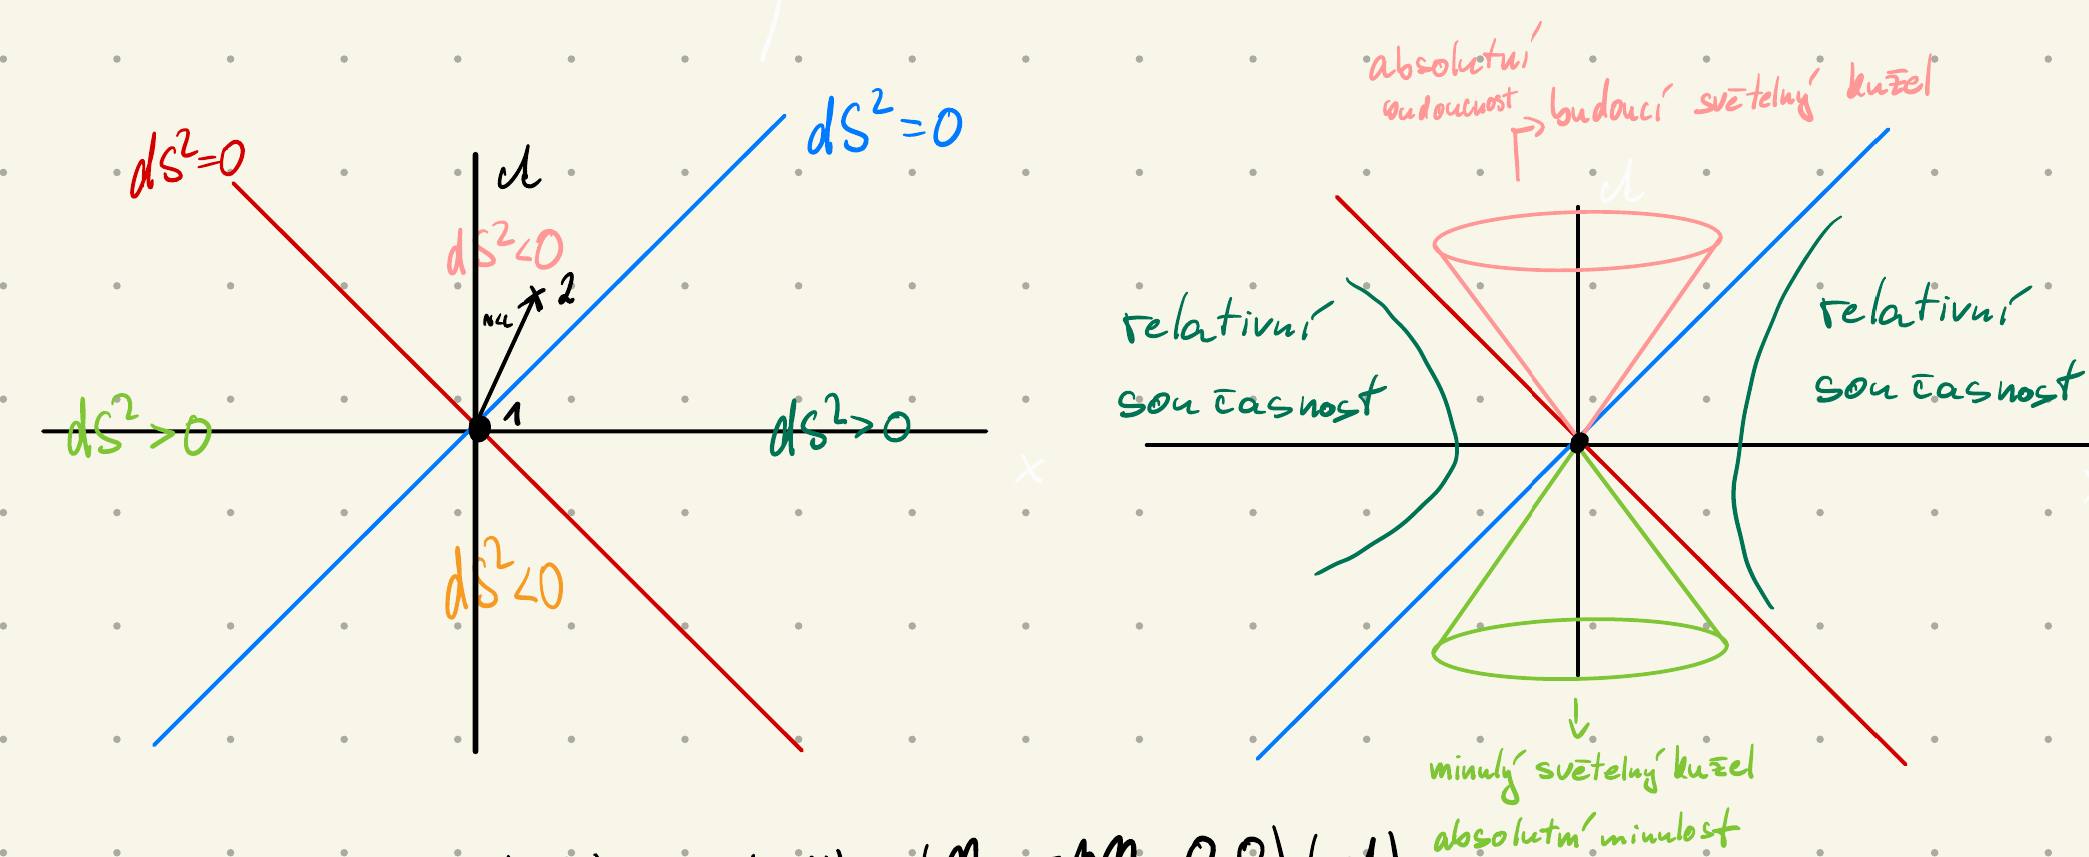 dS²=0
ct
dS²=0
dS²<0
2
v<c
dS²>0
1
dS²>0
x
dS²<0
absolutní
budoucnost
budoucí světelný kužel
ct
relativní
současnost
relativní
současnost
minulý světelný kužel
absolutní minulost